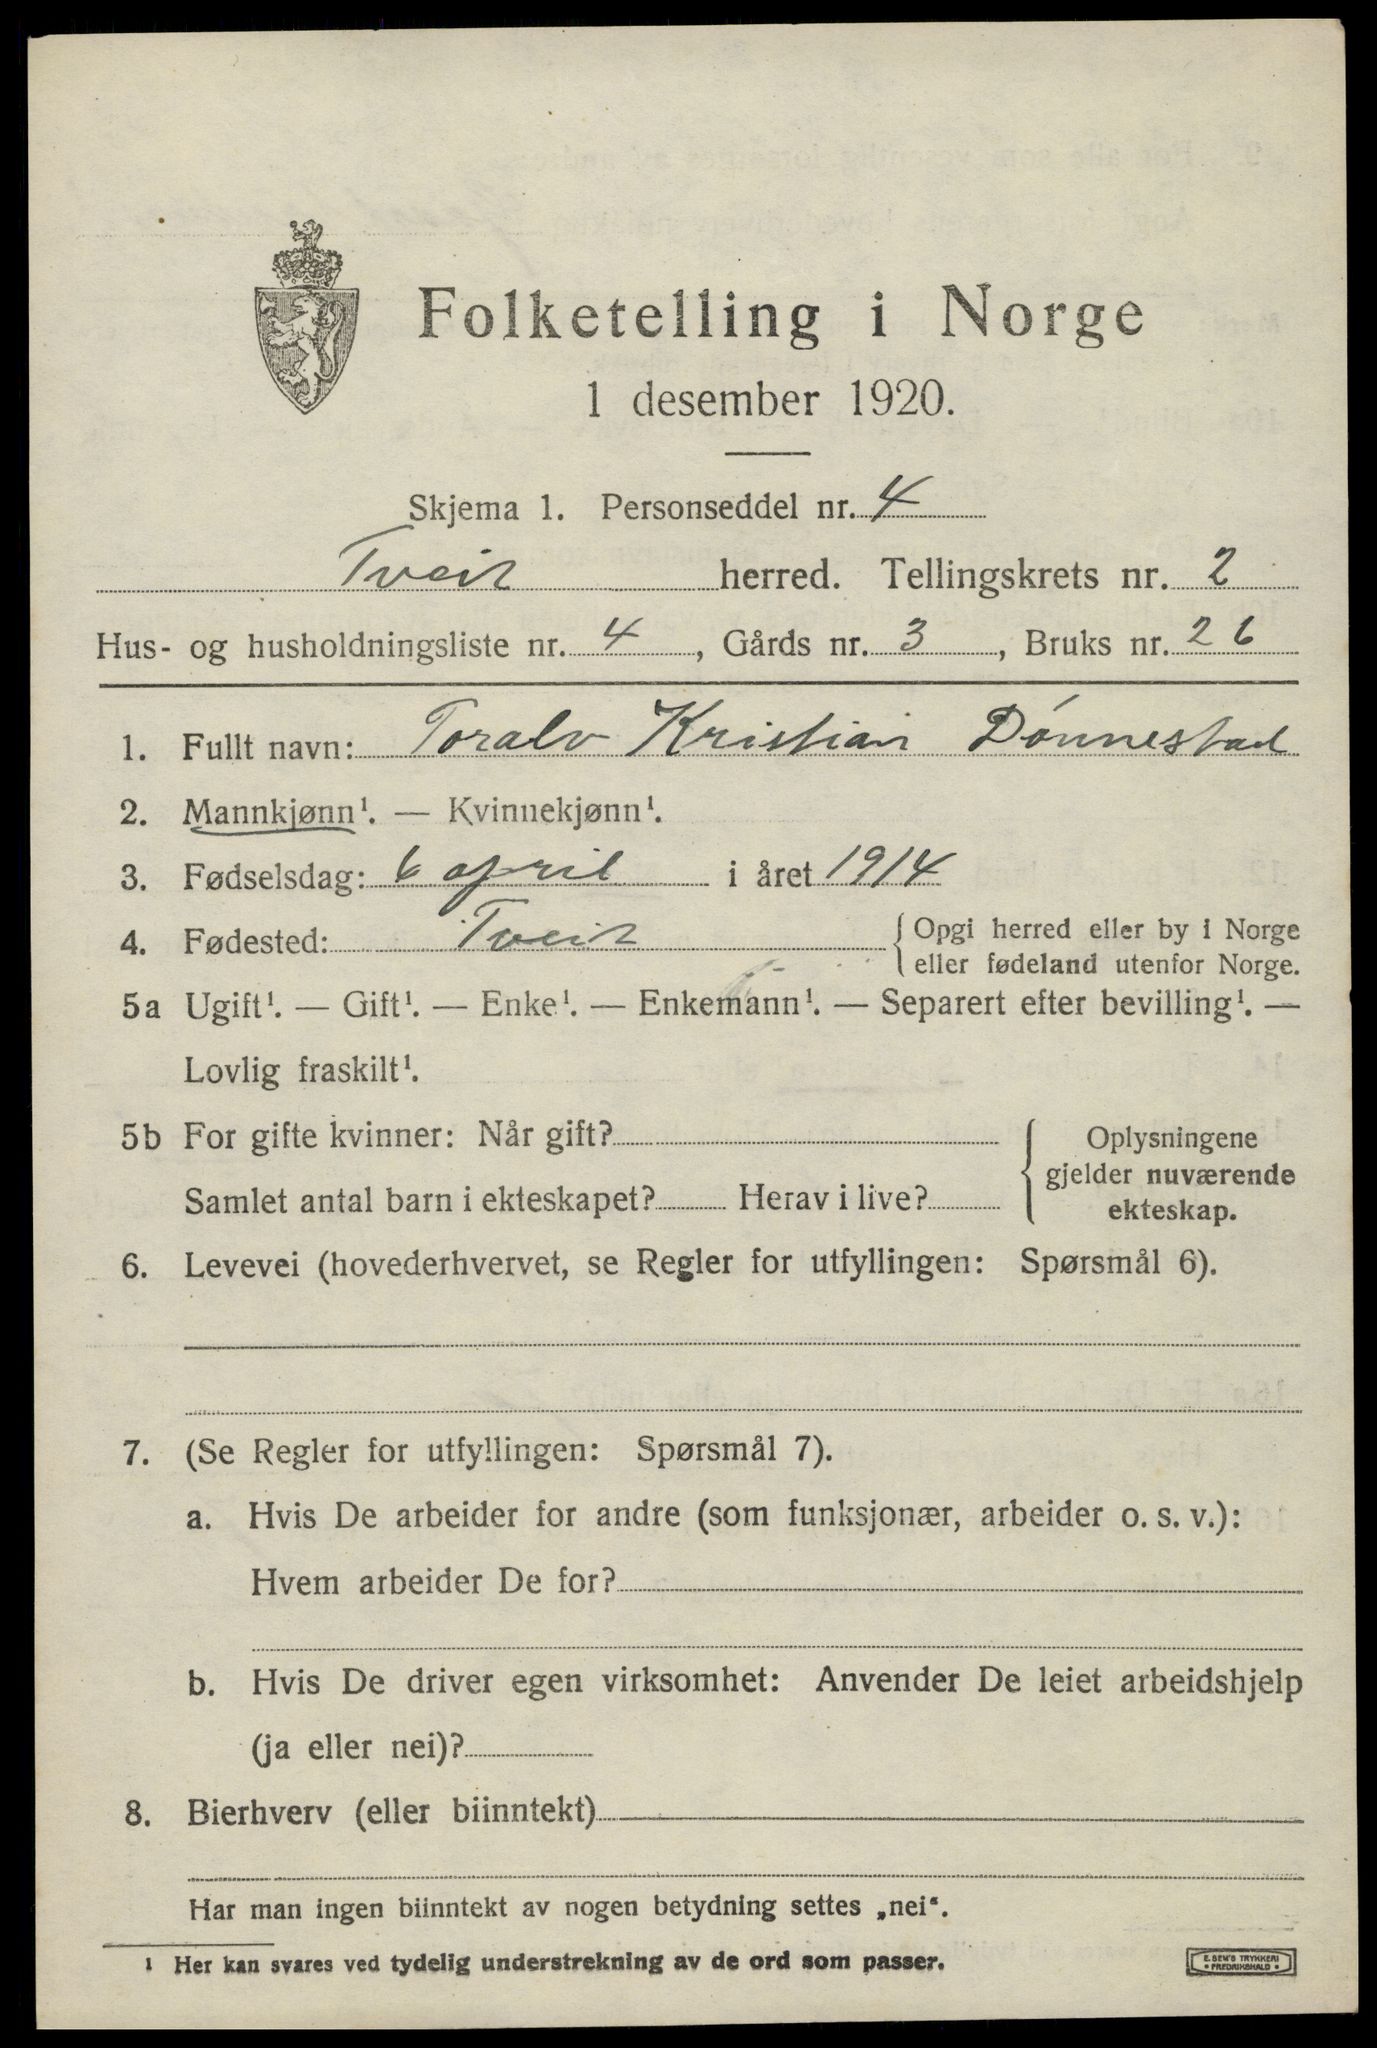 Folketelling i Norge
1 desember 1920.
Skjema 1. Personseddel nr. 4
Tveit herred. Tellingskrets nr. 2
Hus- og husholdningsliste nr. 4, Gårds nr. 3, Bruks nr. 26
1. Fullt navn: Toralv Kristian Dønnestad
2. Mannkjønn¹. — Kvinnekjønn¹.
3. Fødselsdag: 6 april i året 1914
4. Fødested: Tveit { Opgi herred eller by i Norge
eller fødeland utenfor Norge.
5a Ugift¹. — Gift¹. — Enke¹. — Enkemann¹. — Separert efter bevilling¹. —
Lovlig fraskilt¹.
5b For gifte kvinner: Når gift? { Oplysningene
gjelder nuværende
Samlet antal barn i ekteskapet? Herav i live? ekteskap.
6. Levevei (hovederhvervet, se Regler for utfyllingen: Spørsmål 6).
7. (Se Regler for utfyllingen: Spørsmål 7).
a. Hvis De arbeider for andre (som funksjonær, arbeider o. s. v.):
Hvem arbeider De for?
b. Hvis De driver egen virksomhet: Anvender De leiet arbeidshjelp
(ja eller nei)?
8. Bierhverv (eller biinntekt)
Har man ingen biinntekt av nogen betydning settes „nei“.
¹ Her kan svares ved tydelig understrekning av de ord som passer.
E. SEM'S TRYKKERI
• FREDRIKSHALD •